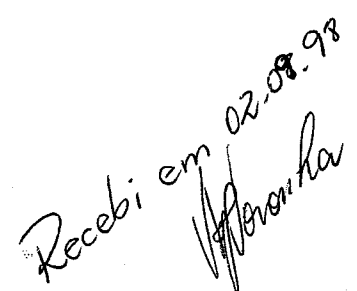 Recebi em 02.09.98